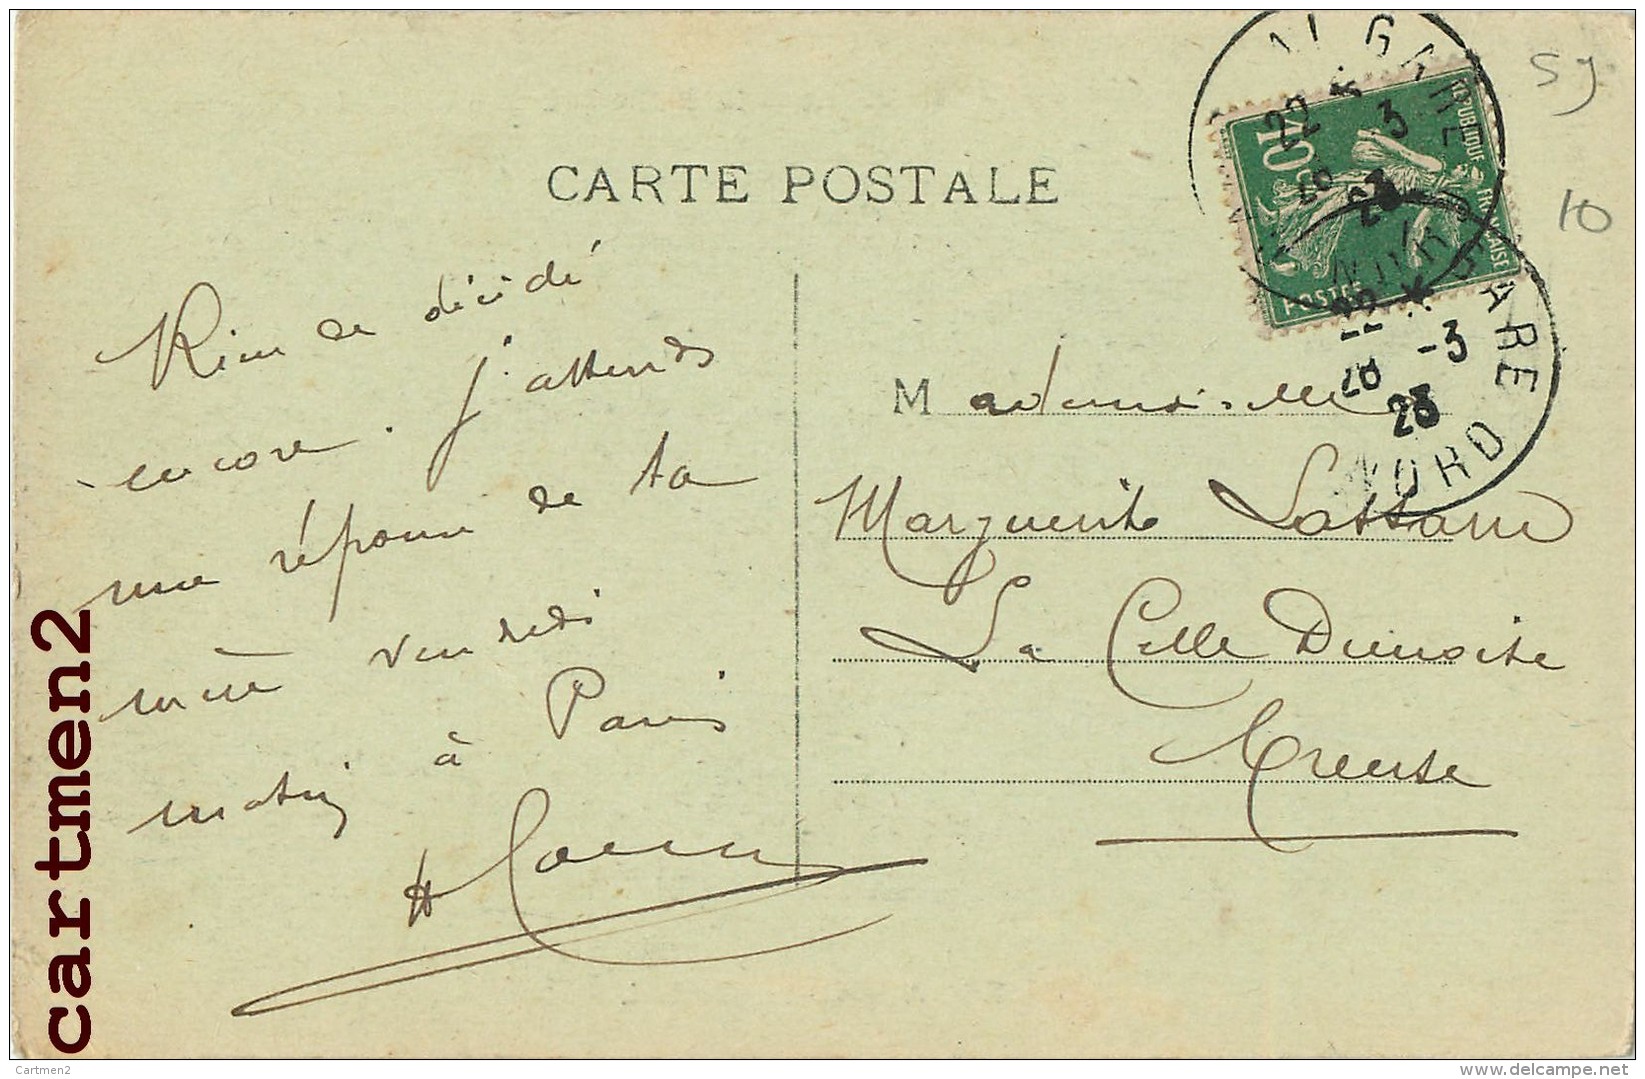 CARTE POSTALE
Rien de décidé
encore. J'attends
une réponse de ta
mère vendredi
matin à Paris
M ademoiselle
Marguerite
La Celle Dunoise
Creuse
10c
REPUBLIQUE FRANÇAISE
POSTES
22
3
23
GARE
NORD
-3
23
59
10
cartmen2
Cartmen2
www.delcampe.net